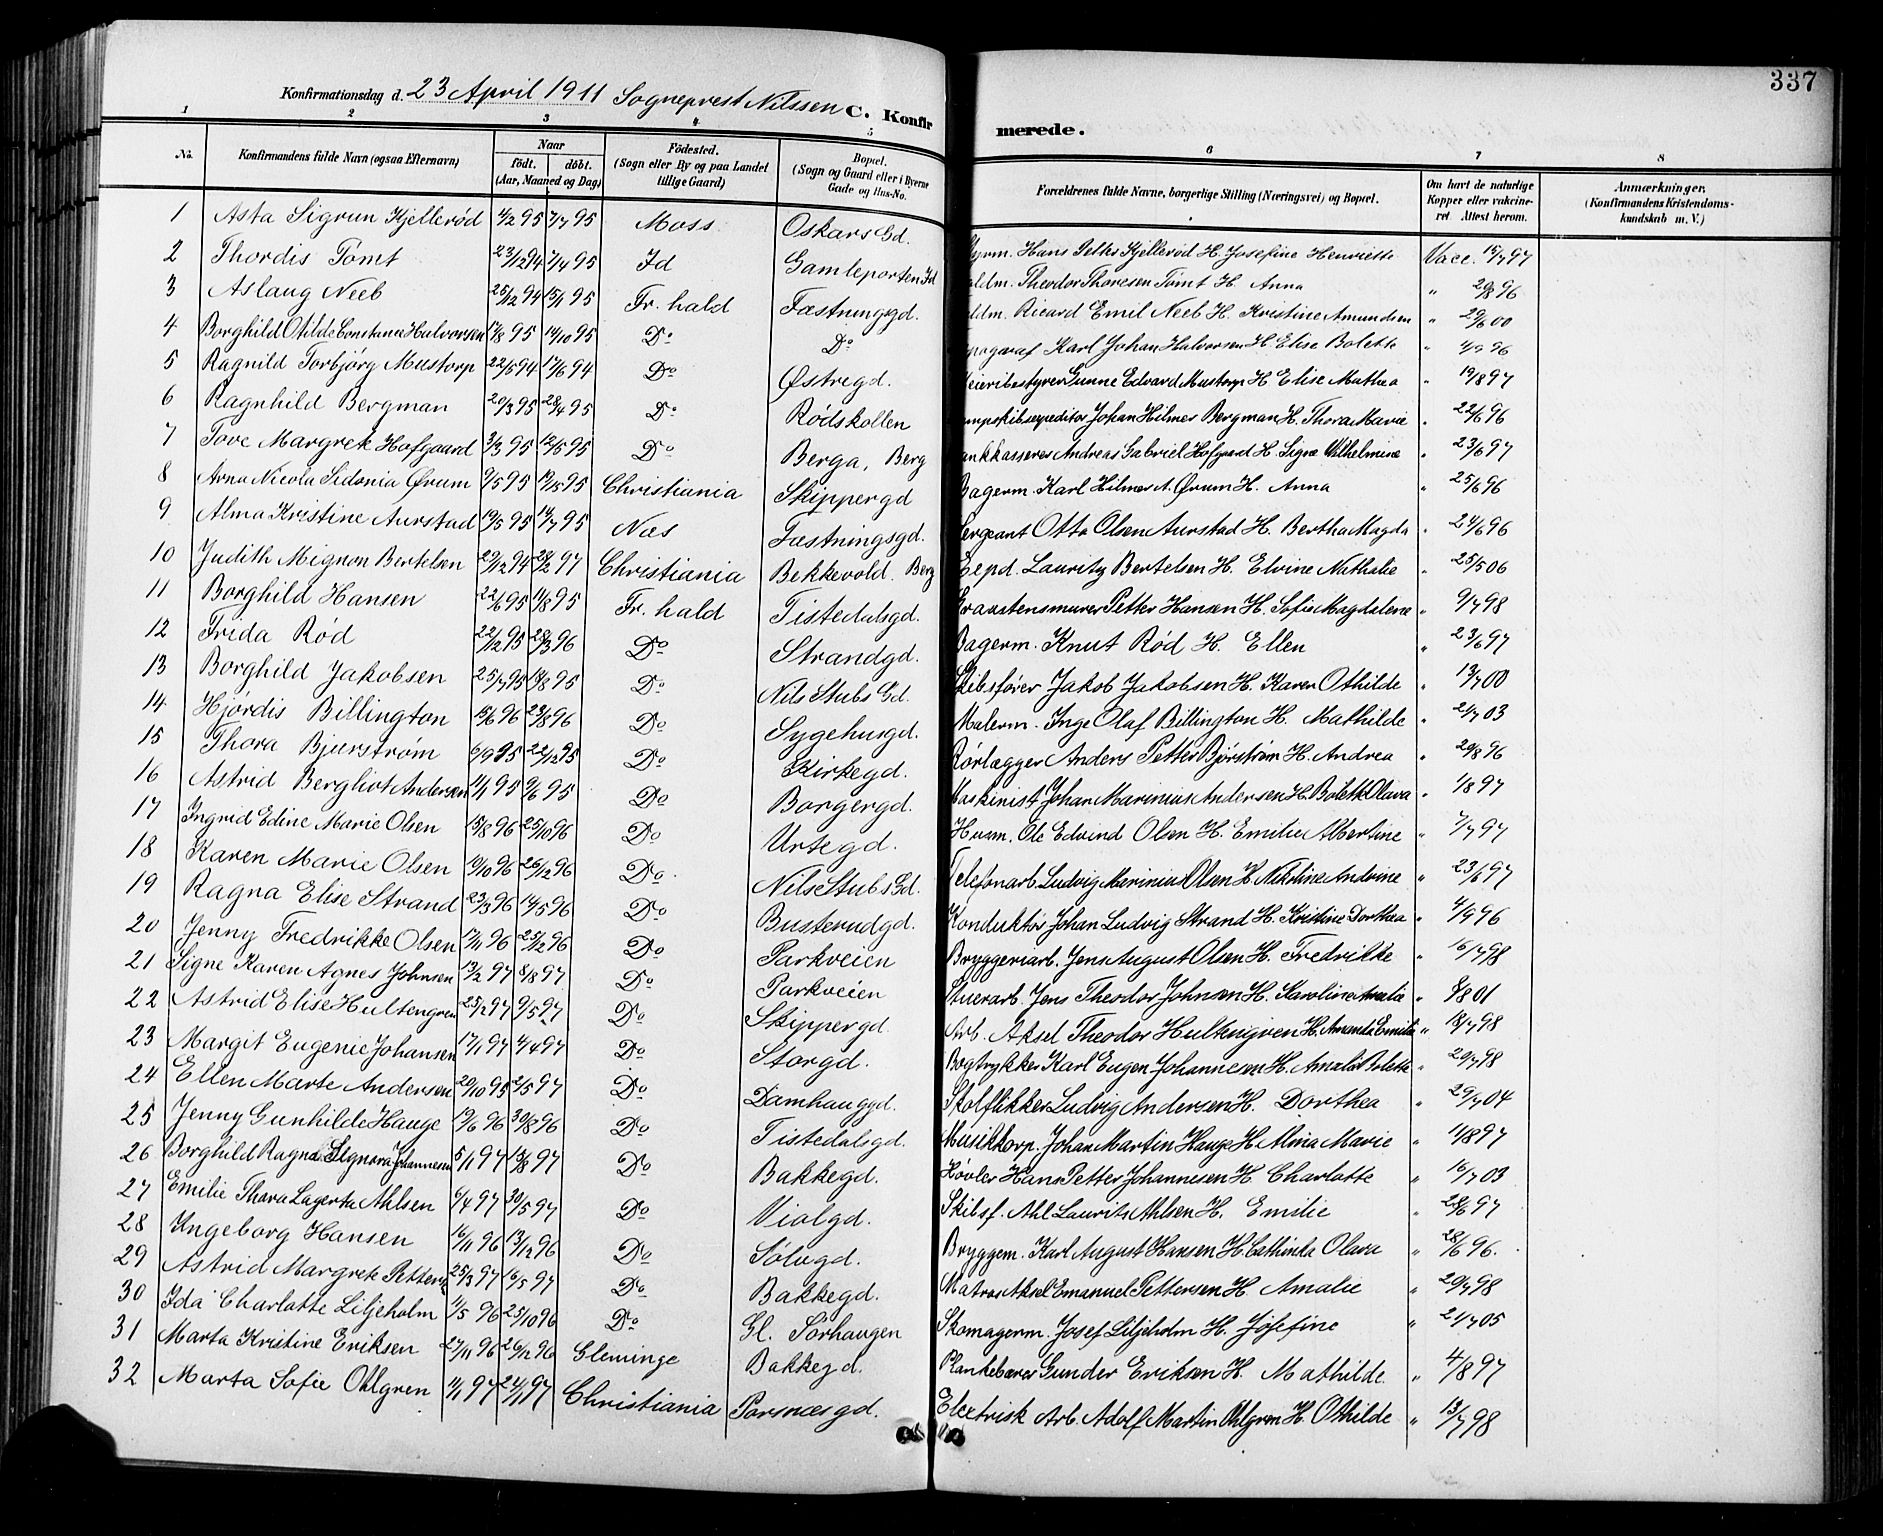 337
Konfirmationsdag d. 23 April 1911 Sogneprest Nilssen C. Konfir merede.
1 2 3 4 5 6 7 8
No. Konfirmandens fulde Navn (ogsaa Efternavn) Naar födt. döbt. (Aar, Maaned og Dag) Födested. (Sogn eller By og paa Landet tillige Gaard) Bopæl. (Sogn og Gaard eller i Byerne Gade og Hus-No. Forældrenes fulde Navne, borgerlige Stilling (Næringsvei) og Bopæl. Om havt de naturlige Kopper eller vakcineret. Attest herom. Anmærkninger. (Konfirmandens Kristendomskundskab m. V.)
1 Asta Sigrun Kjellerød 4/2 95 7/7 95 Moss Oskars Gd. Hans Petter Kjellerød H. Josefine Henriette Vacc. 15/7 97
2 Thordis Tømt 23/12 94 7/4 95 Id Gamleporten Id Theodor Thoresen Tømt H. Anna " 29/8 96
3 Aslaug Neeb 25/12 94 15/1 95 Fr. hald Fæstningsgd. Ricard Emil Neeb H. Kristine Amundsen " 29/6 00
4 Borghild Otilde Constance Halvorsen 17/8 95 14/10 95 Do Do Karl Johan Halvorsen H. Elise Bolette " 4/9 96
5 Ragnild Torbjørg Mustorp 22/5 94 17/6 94 Do Østregd. Meieribestyrer Gunne Edvard Mustorp H Elise Mathea " 19/8 97
6 Ragnhild Bergman 20/3 95 28/4 95 Do Rødskollen Dampskibsexpeditør Johan Hilmer Bergman H. Thora Marie " 22/6 96
7 Tove Margrete Hofgaard 3/3 95 12/5 95 Do Berga, Berg Bankkasserer Andreas Gabriel Hofgaard H Signe Wilhelmine " 23/6 97
8 Arna Nicola Sidonia Ørum 9/5 95 Christiania Skippergd Bagerm. Karl Hilmer A. Ørum H. Anna " 25/6 96
9 Alma Kristine Aurstad 19/5 95 14/7 95 Næs Fæstningsgd. Sergeant Otto Olsen Aurstad H. Bertha Magda " 24/6 96
10 Judith Mignon Bertelsen 29/12 94 28/2 97 Christiania Bekkevold. Berg Expd. Lauritz Bertelsen H. Elvine Nathalie " 25/5 06
11 Borghild Hansen 22/6 95 11/8 95 Fr. hald Tistedalsgd. Graastensmurer Petter Hansen H. Sofie Magdalene " 9/7 98
12 Frida Rød 22/12 95 29/3 96 Do Strandgd. Bagerm. Knut Rød H. Ellen " 23/6 97
13 Borghild Jakobsen 25/7 95 18/8 95 Do Nils Stubs Gd. Skibsfører Jakob Jakobsen H. Karen Othilde " 13/7 00
14 Hjørdis Billington 15/6 96 23/8 96 Do Sygehusgd. Malerm. Inge Olaf Billington H. Mathilde " 21/7 03
15 Thora Bjurstrøm 6/9 95 22/12 95 Do Kirkegd. Rørlægger Anders Petter Bjørstrøm H. Andrea " 29/8 96
16 Astrid Bergliot Andersen 11/1 95 9/6 95 Do Borgergd. Maskinist Johan Marinius Andersen H. Bolette Olava " 1/8 97
17 Ingrid Edine Marie Olsen 15/8 96 25/10 96 Do Urtegd. Husm. Ole Edvind Olsen H. Emilie Albertine " 7/7 97
18 Karen Marie Olsen 19/10 96 26/12 96 Do Nils Stubs Gd. Telefonarb. Ludvig Marinius Olsen H. Nikoline Andrine " 23/6 97
19 Ragna Elise Strand 23/3 96 14/5 96 Do Busterudgd. Konduktør Johan Ludvig Strand H. Kristine Dorthea " 4/9 96
20 Jenny Fredrikke Olsen 17/11 96 25/12 96 Do Parkveien Bryggeriarb. Jens August Olsen H. Fredrikke " 16/7 98
21 Signe Karen Agnes Johnsen 13/2 97 8/8 97 Do Parkveien Stuerarb. Jens Theodor Johnsen H. Karoline Amalie " 8/8 01
22 Astrid Elise Hultengren 25/2 97 9/5 97 Do Skippergd. Arb. Aksel Theodor Hultengren H. Amanda Emilie " 18/7 98
23 Margit Eugenie Johansen 17/1 97 4/4 97 Do Storgd. Bogtrykker Karl Eugen Johannesen H. Amalie Bolette " 20/7 98
24 Ellen Marte Andersen 20/10 95 2/5 97 Do Damhauggd. Skolflikker Ludvig Andersen H. Dorthea " 29/7 04
25 Jenny Gunhilde Hauge 19/6 96 30/8 96 Do Tistedalsgd. Musikkorp. Johan Martin Hauge H. Alma Marie " 11/8 97
26 Borghild Ragna Signora Johannesen 5/1 97 15/8 97 Do Bakkegd. Høvler Hans Petter Johannesen H. Charlotte " 16/7 03
27 Emilie Thora Lagerta Ahlsen 6/4 97 30/5 97 Do Violgd. Skibsf. Ahl Laurits Ahlsen H. Emilie " 28/6 97
28 Ingeborg Hansen 16/11 96 13/12 96 Do Sølvgd. Bryggem. Karl August Hansen H. Cathinka Olava " 28/6 96.
29 Astrid Margrete Petters 25/3 97 16/5 97 Do Bakkegd. Matros Aksel Emanuel Pettersen H. Amalie " 20/7 98
30 Ida Charlotte Liljeholm 11/5 96 25/10 96 Do Gl. Sørhaugen Skomagerm. Josef Liljeholm H. Josefine " 21/7 05
31 Marta Kristine Eriksen 27/11 96 26/12 96 Gleminge Bakkegd. Plankebærer Gunder Eriksen H. Mathilde. " 4/8 97
32 Marta Sofie Ohlgren 1/1 97 24/1 97 Christiania Porsnæsgd. Electrisk Arb. Adolf Martin Ohlgren H. Othilde " 13/7 98